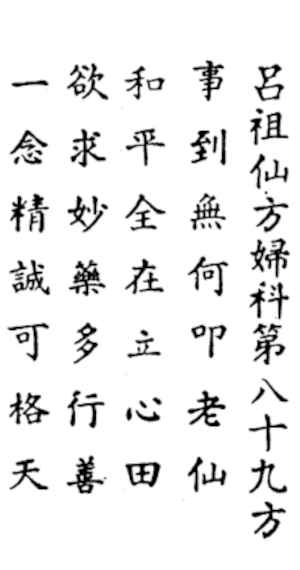 呂祖仙方婦科第八十九方
事到無何叩老仙
和平全在立心田
欲求妙藥多行善
一念精誠可格天